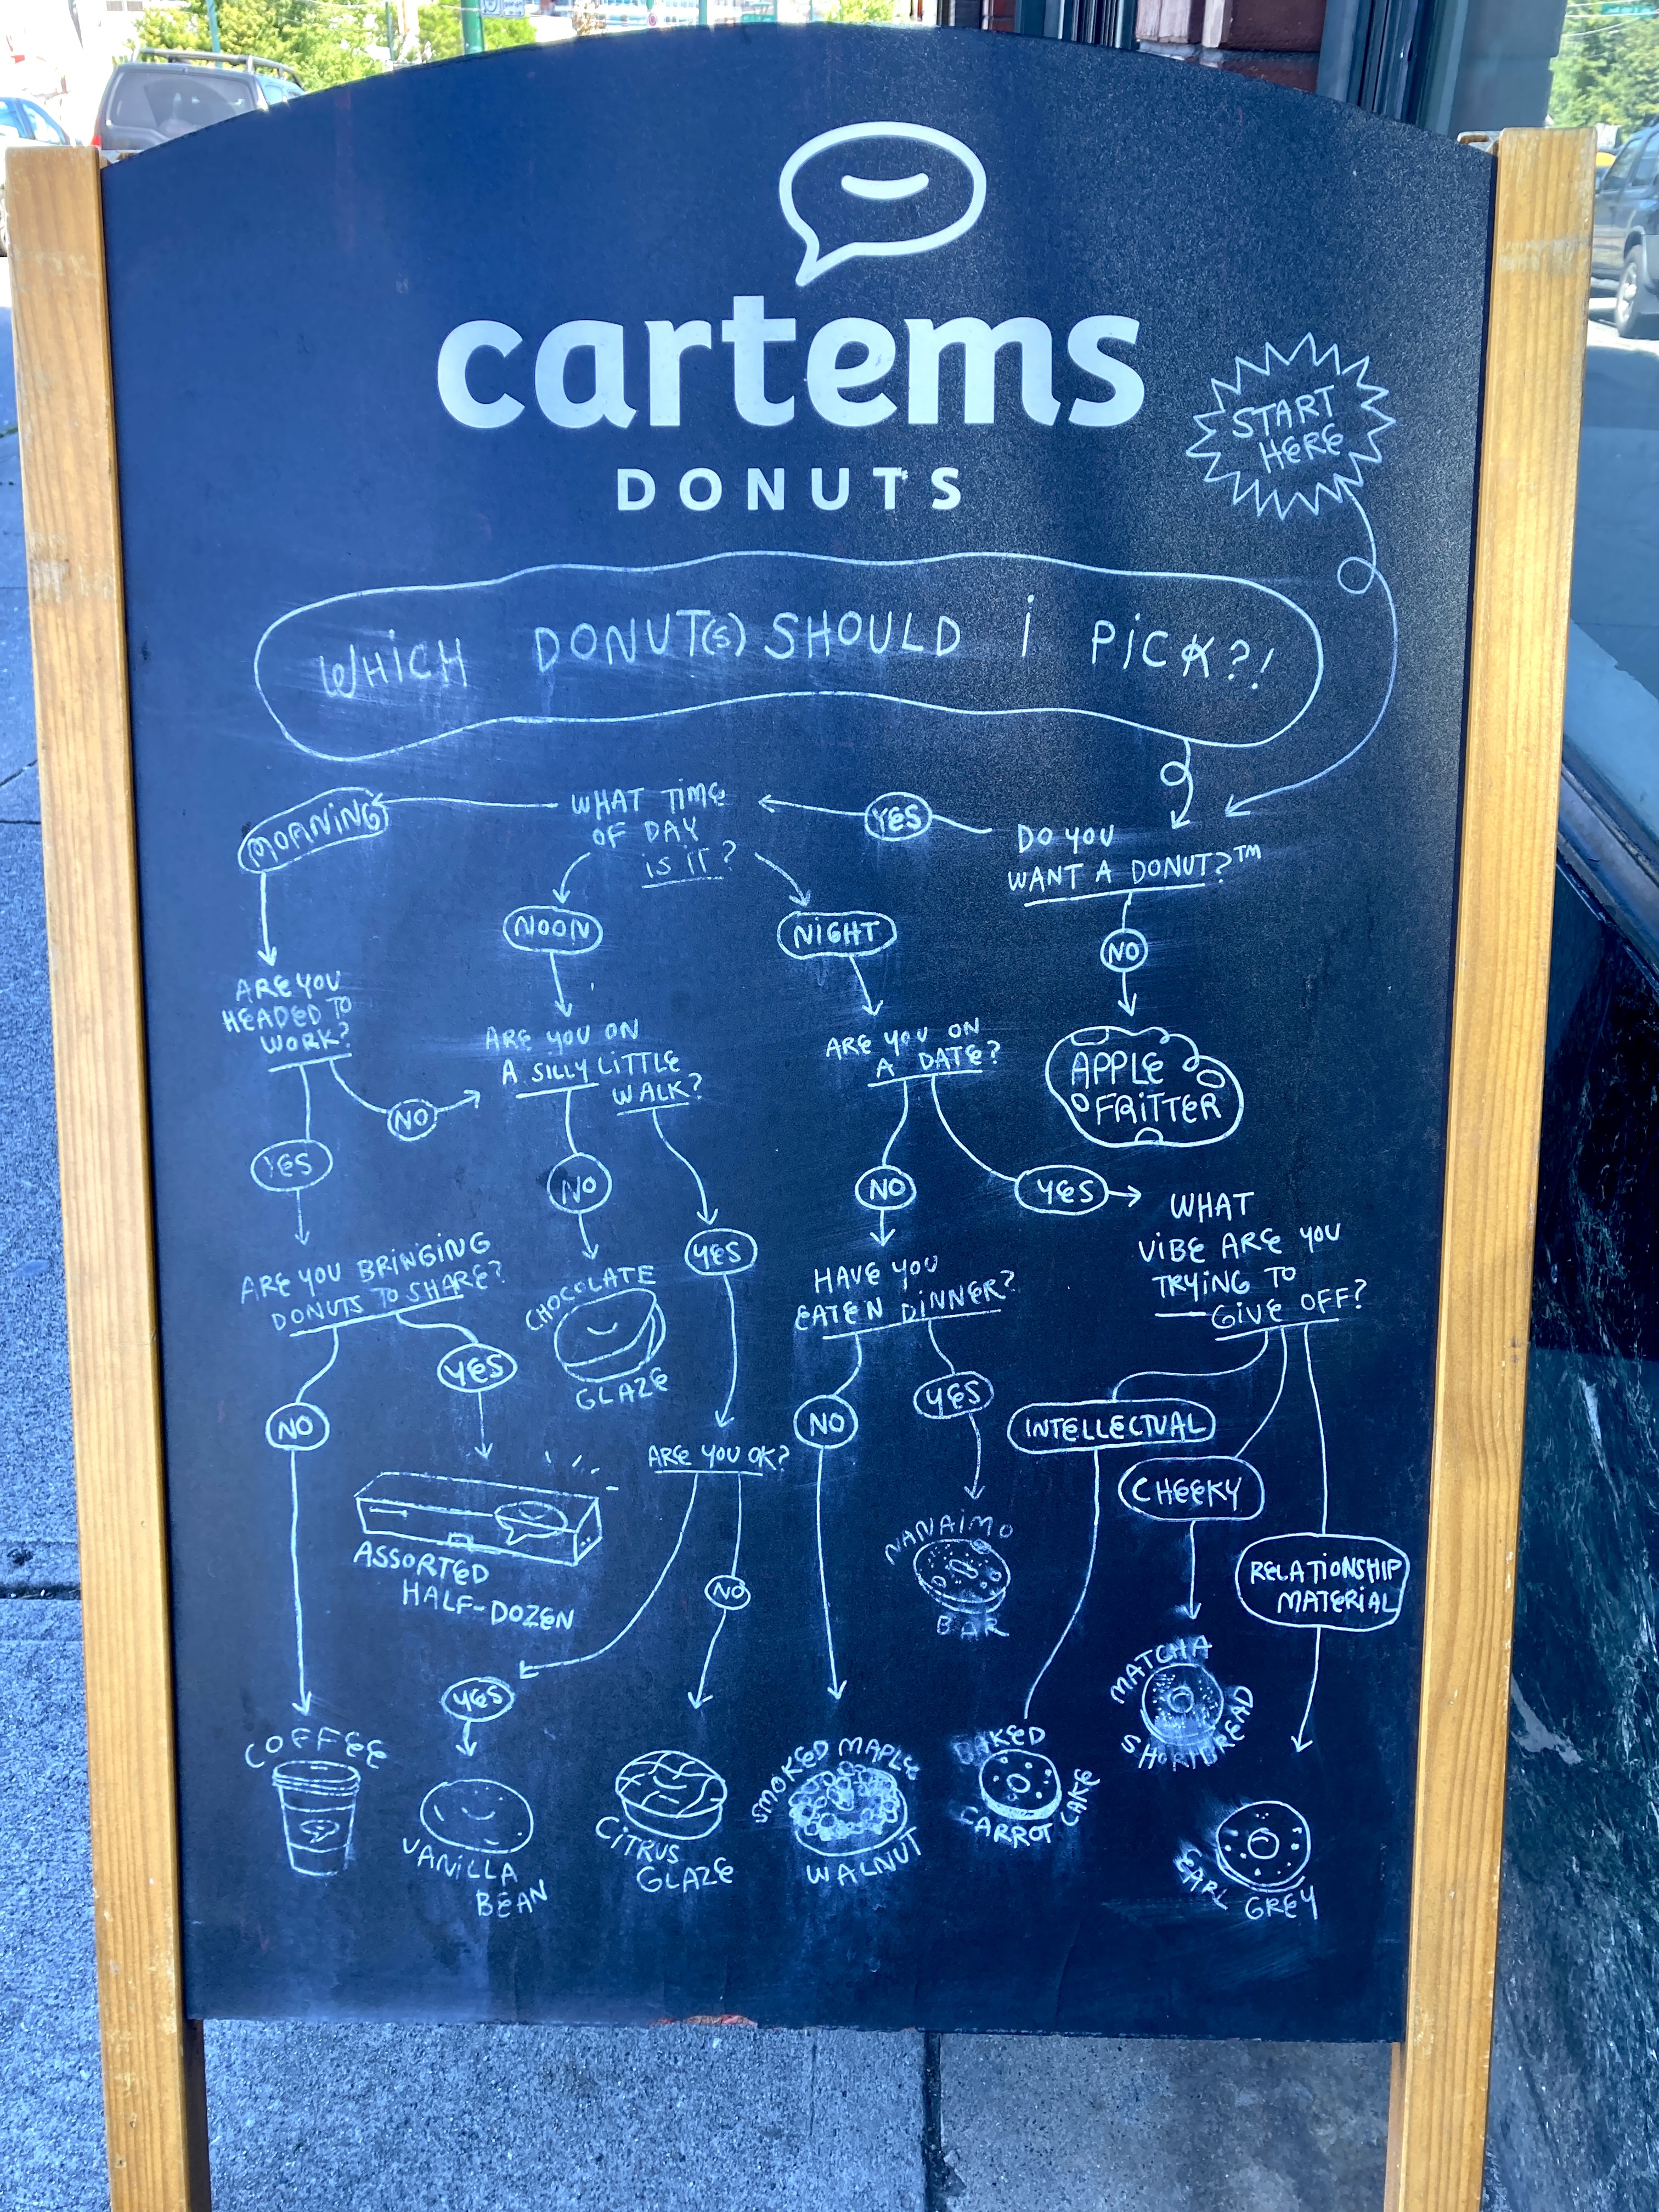 cartems
DONUTS
START
HERE
WHICH DONUT(S) SHOULD I PICK?!
DO YOU
WANT A DONUT?™
YES
NO
APPLE
FRITTER
WHAT TIME
OF DAY
IS IT?
MORNING
NOON
NIGHT
ARE YOU
HEADED TO
WORK?
NO
YES
ARE YOU BRINGING
DONUTS TO SHARE?
NO
YES
COFFEE
ASSORTED
HALF-DOZEN
ARE YOU ON
A SILLY LITTLE
WALK?
NO
YES
CHOCOLATE
GLAZE
ARE YOU OK?
YES
NO
VANILLA
BEAN
CITRUS
GLAZE
ARE YOU ON
A DATE?
NO
YES
HAVE YOU
EATEN DINNER?
NO
YES
SMOKED MAPLE
WALNUT
NANAIMO
BAR
WHAT
VIBE ARE YOU
TRYING TO
GIVE OFF?
INTELLECTUAL
CHEEKY
RELATIONSHIP
MATERIAL
BAKED
CARROT CAKE
MATCHA
SHORTBREAD
EARL GREY